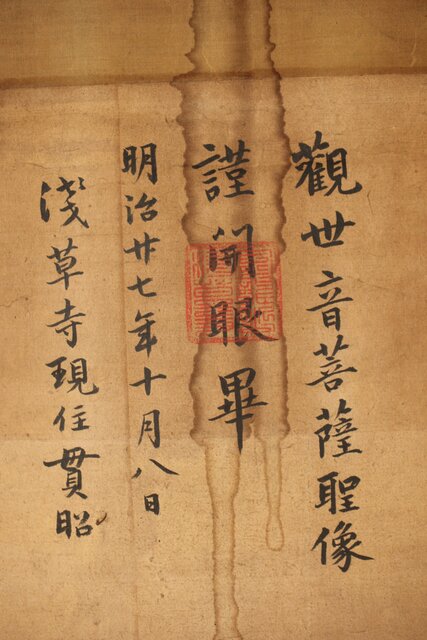 觀世音菩薩聖像
謹開眼畢
明治廿七年十月八日
淺草寺現住貫昭